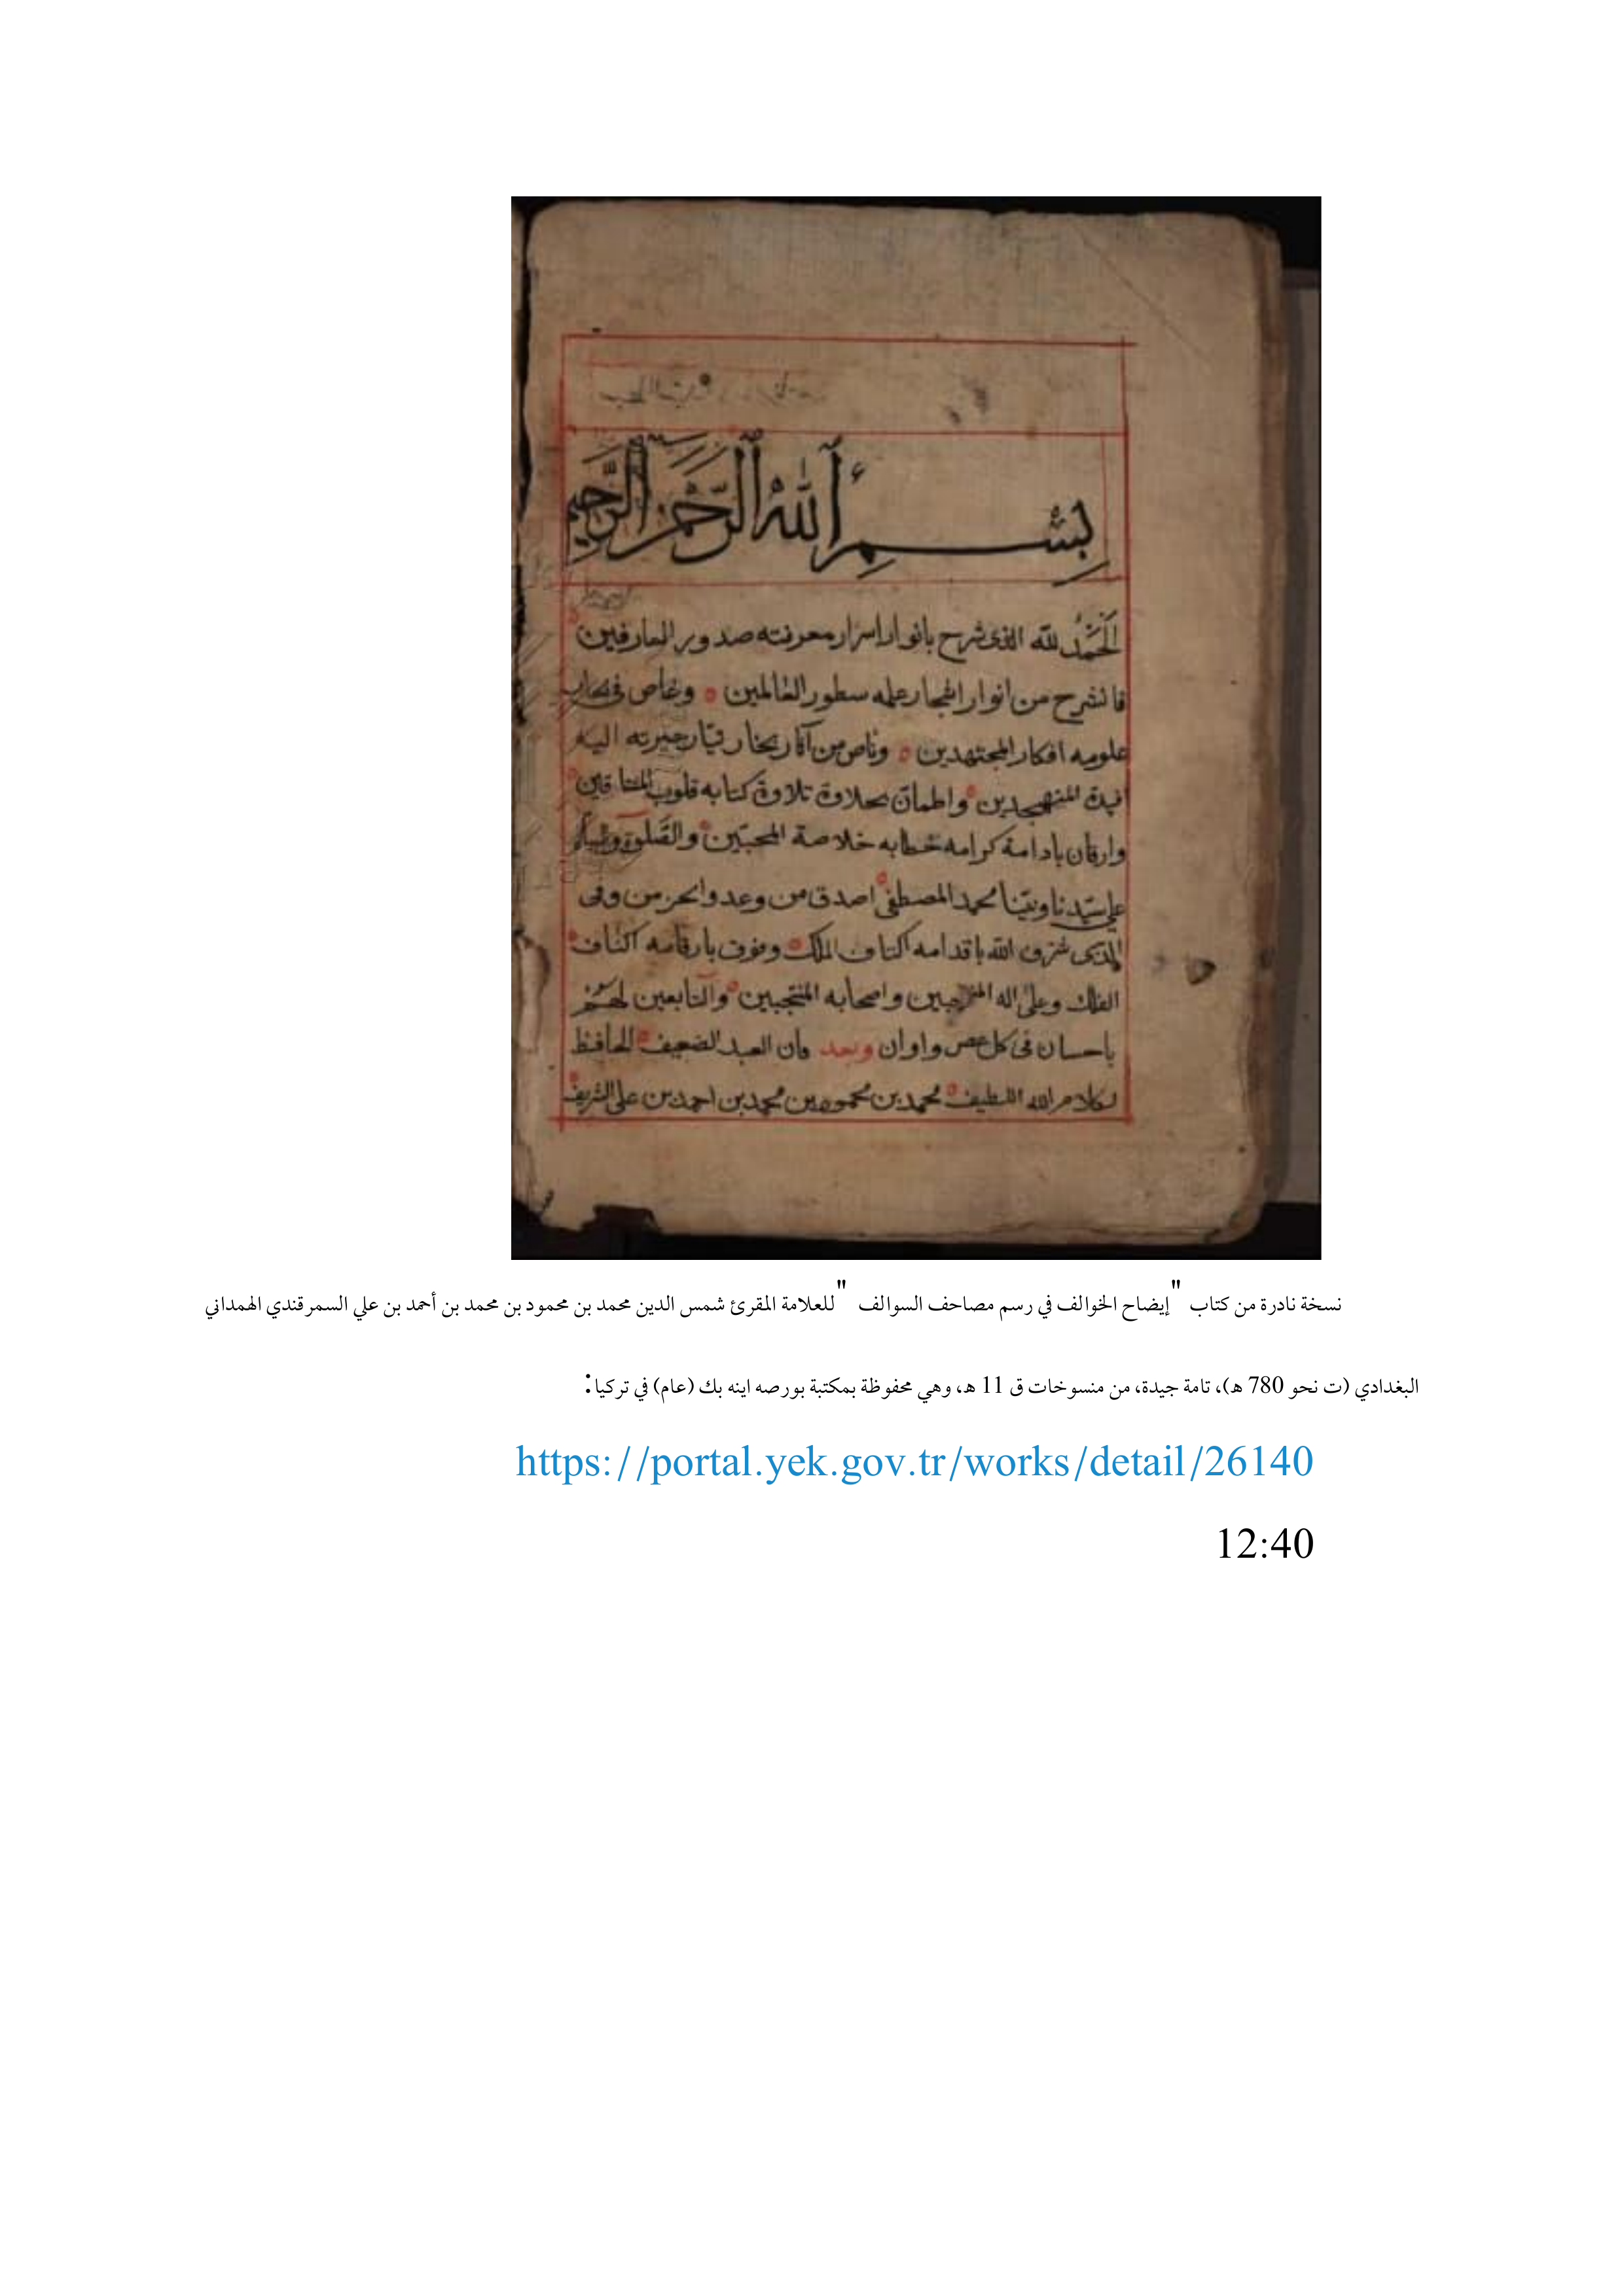 بِسْمِ ٱللّٰهِ ٱلرَّحْمٰنِ ٱلرَّحِيمِ
اَلْحَمْدُ لله الذى شرح بانوار اسرار معرفته صدور العارفين
فانشرح من انوار اشجار علمه سطور العالمين وغاص فى بحار
علومه افكار المجتهدين من بحار حيرته
واطمان بحلاوة تلاوة كتابه قلوب
بادامة كرامه خطابه خلاصة المحبين والصلوة
على سيدنا ونبينا محمد المصطفى اصدق من وعد من وفى
الذى شرف الله باقدامه اكتاف الملك بارقامه اكناف
الفلك وعلى اله واصحابه المنتجبين والتابعين لهم
باحسان فى كل عصر واوان وبعد فان العبد الضعيف الحافظ
لكلام الله اللطيف محمد بن محمود بن محمد بن احمد بن على الشريف
نسخة نادرة من كتاب "إيضاح الخوالف في رسم مصاحف السوالف "للعلامة المقرئ شمس الدين محمد بن محمود بن محمد بن أحمد بن علي السمرقندي الهمداني
البغدادي (ت نحو 780 هـ)، تامة جيدة، من منسوخات ق 11 هـ، وهي محفوظة بمكتبة بورصه اينه بك (عام) في تركيا:
https://portal.yek.gov.tr/works/detail/26140
12:40